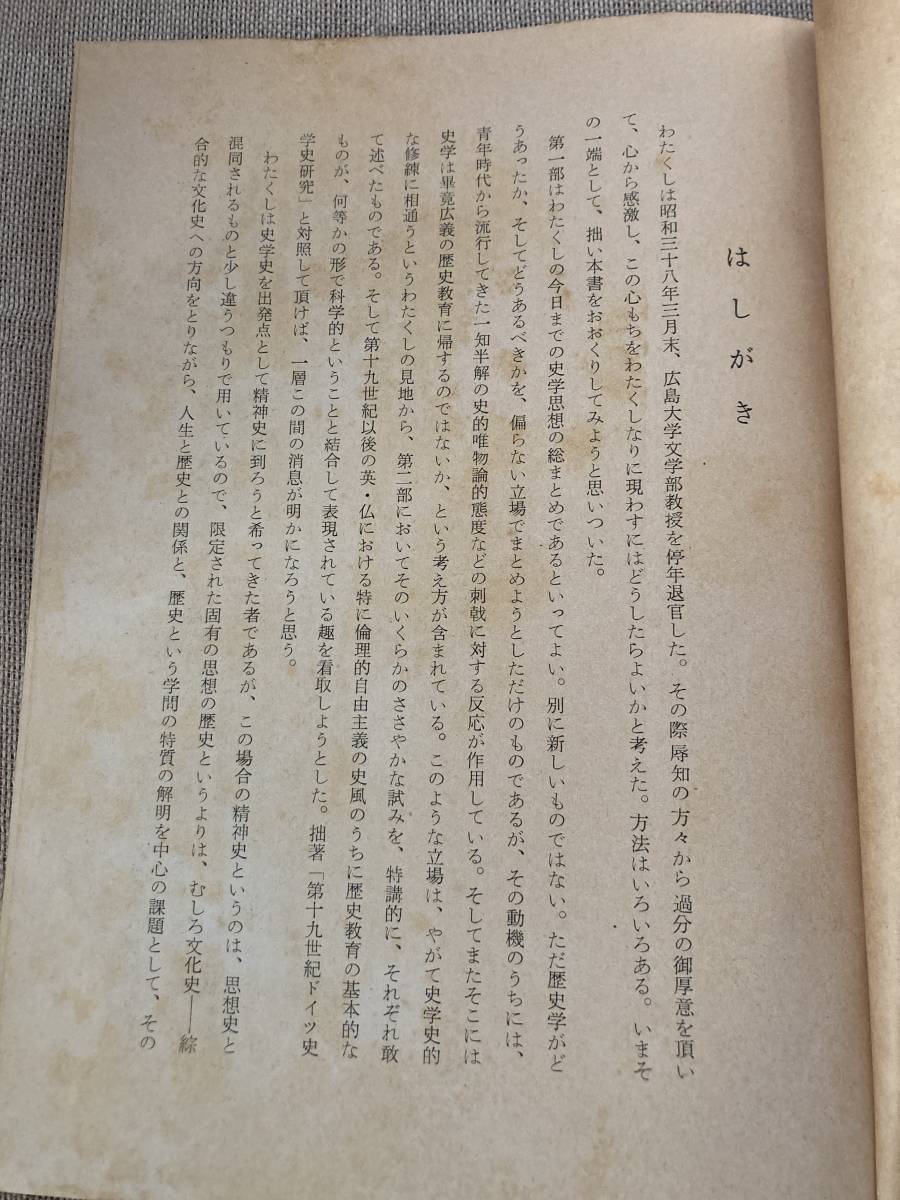 はしがき
わたくしは昭和三十八年三月末、広島大学文学部教授を停年退官した。その際辱知の方々から過分の御厚意を頂い
て、心から感激し、この心もちをわたくしなりに現わすにはどうしたらよいかと考えた。方法はいろいろある。いまそ
の一端として、拙い本書をおおくりしてみようと思いついた。
第一部はわたくしの今日までの史学思想の総まとめであるといってよい。別に新しいものではない。ただ歴史学がど
うあったか、そしてどうあるべきかを、偏らない立場でまとめようとしただけのものであるが、その動機のうちには、
青年時代から流行してきた一知半解の史的唯物論的態度などの刺戟に対する反応が作用している。そしてまたそこには
史学は畢竟広義の歴史教育に帰するのではないか、という考え方が含まれている。このような立場は、やがて史学史的
な修練に相通うというわたくしの見地から、第二部においてそのいくらかのささやかな試みを、特講的に、それぞれ敢
て述べたものである。そして第十九世紀以後の英・仏における特に倫理的自由主義の史風のうちに歴史教育の基本的な
ものが、何等かの形で科学的ということと結合して表現されている趣を看取しようとした。拙著「第十九世紀ドイツ史
学史研究」と対照して頂けば、一層この間の消息が明かになろうと思う。
わたくしは史学史を出発点として精神史に到ろうと希ってきた者であるが、この場合の精神史というのは、思想史と
混同されるものと少し違うつもりで用いているので、限定された固有の思想の歴史というよりは、むしろ文化史――綜
合的な文化史への方向をとりながら、人生と歴史との関係と、歴史という学問の特質の解明を中心の課題として、その